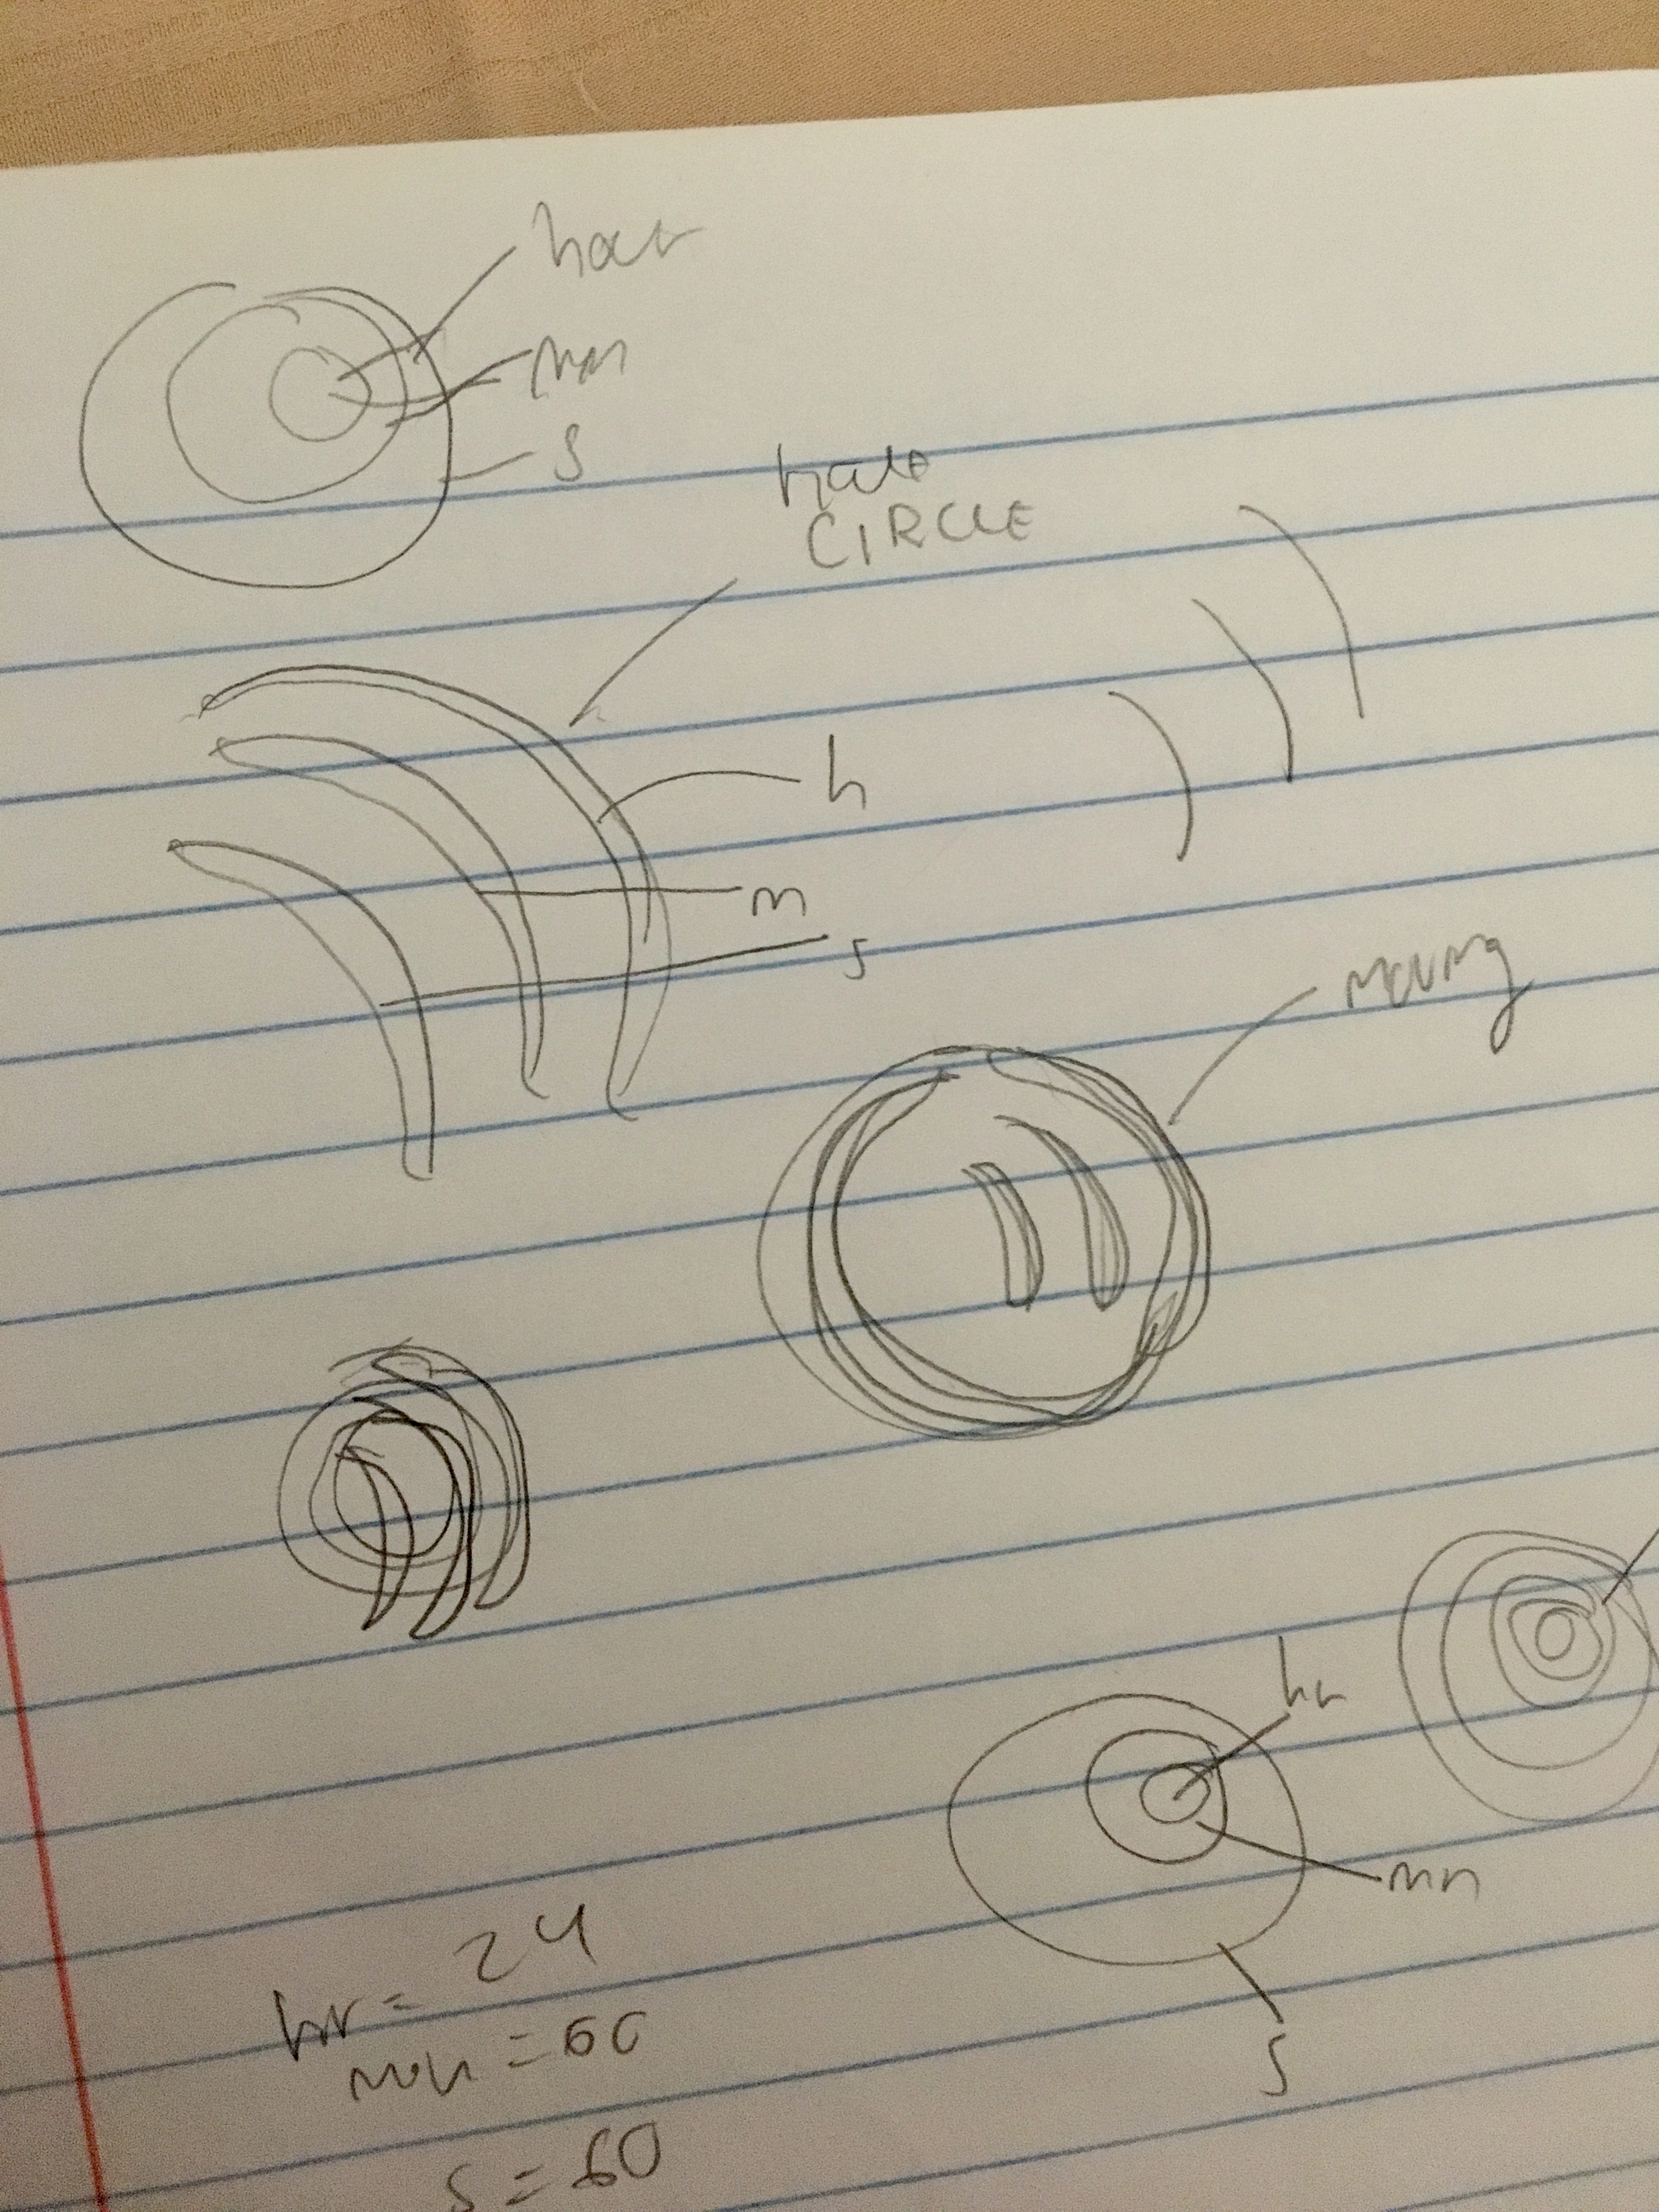 hour
min
s
half
CIRCLE
h
m
s
moving
hr
min
s
hr = 24
min = 60
s = 60